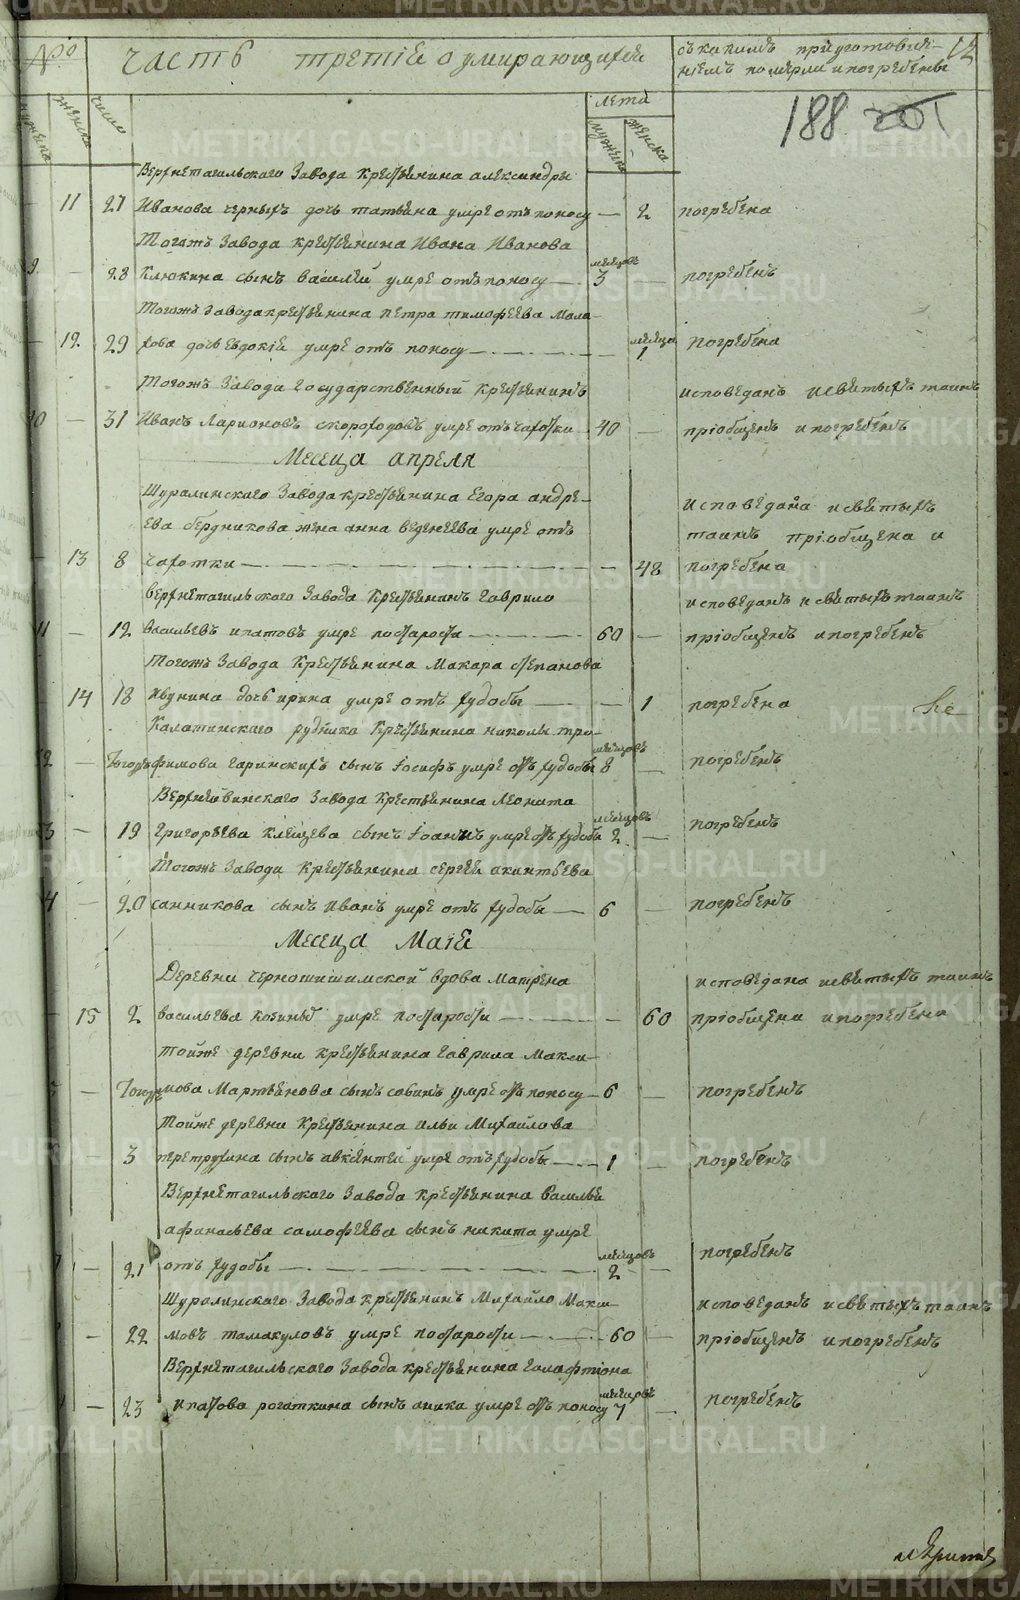 №
часть третіѣ о умирающихъ
съ какимъ приуготовле-
ніемъ померли и погребены
12
188 201
мужеска женска число
лета
мужеска женска
Верхнетагильскаго Завода крестьянина александры
11 27 Иванова черныхъ дочь татьяна умре отъ поносу — 2 погребена
Тогожъ Завода крестьянина Ивана Иванова
9 — 28 Клюкина сынъ василей умре отъ поносу — месяцовъ 3 — погребенъ
Тогожъ завода крестьянина петра тимофеева мала-
— 12 29 хова дочь евдокіе умре отъ поносу — месяца 1 погребена
Тогожъ Завода государственный крестьянинъ исповеданъ и святыхъ таинъ
10 — 31 Иванъ Ларионовъ скороходовъ умре отъ чахотки 40 — пріобщенъ и погребенъ
Месеца апреля
Шуралинскаго Завода крестьянина Егора андре- исповедана и святыхъ
ева бердникова жена анна веденеева умре отъ таинъ пріобщена и
— 13 8 чахотки — 48 погребена
верхнетагильскаго Завода крестьянинъ гаврило исповеданъ и святыхъ таинъ
11 — 12 васильевъ ипатовъ умре постарости — 60 — пріобщенъ и погребенъ
Тогожъ Завода крестьянина Макара степанова
— 14 18 ивунина дочь ирина умре отъ худобы — 1 погребена
Калатинскаго рудника крестьянина николы тро-
12 — Тогожъ фимова гаринскихъ сынъ Іосифъ умре отъ худобы месяцовъ 8 — погребенъ
Верхнейвинскаго Завода крестьянина Леонта
13 — 19 григорьева клещева сынъ Іоаннъ умре отъ худобы месяцовъ 2 — погребенъ
Тогожъ Завода крестьянина сергее акинтьева
14 — 20 санникова сынъ Иванъ умре отъ худобы — 6 — погребенъ
Месеца Маіе
Деревни чернашишимской вдова матрена исповедана и святыхъ таинъ
— 15 2 васильева козиныхъ умре постарости — 60 пріобщена и погребена
Тойже деревни крестьянина гаврила макси-
— Тогожъ мова Мартьянова сынъ савинъ умре отъ поносу — 6 — погребенъ
Тойже деревни крестьянина ильи михайлова
— 3 перетрухина сынъ авксентей умре отъ худобы — 1 — погребенъ
Верхнетагильскаго Завода крестьянина василье
афанасьева самофеева сынъ никита умре
— 21 отъ худобы — месяцовъ 2 — погребенъ
Шуралинскаго Завода крестьянинъ Михайло Макси- исповеданъ и святыхъ таинъ
— 22 мовъ тамакуловъ умре постарости — 60 — пріобщенъ и погребенъ
Верхнетагильскаго Завода крестьянина галафтіона
— 23 ипатова рогаткина сынъ аника умре отъ поносу месяцовъ 7 — погребенъ
METRIKI.GASO-URAL.RU